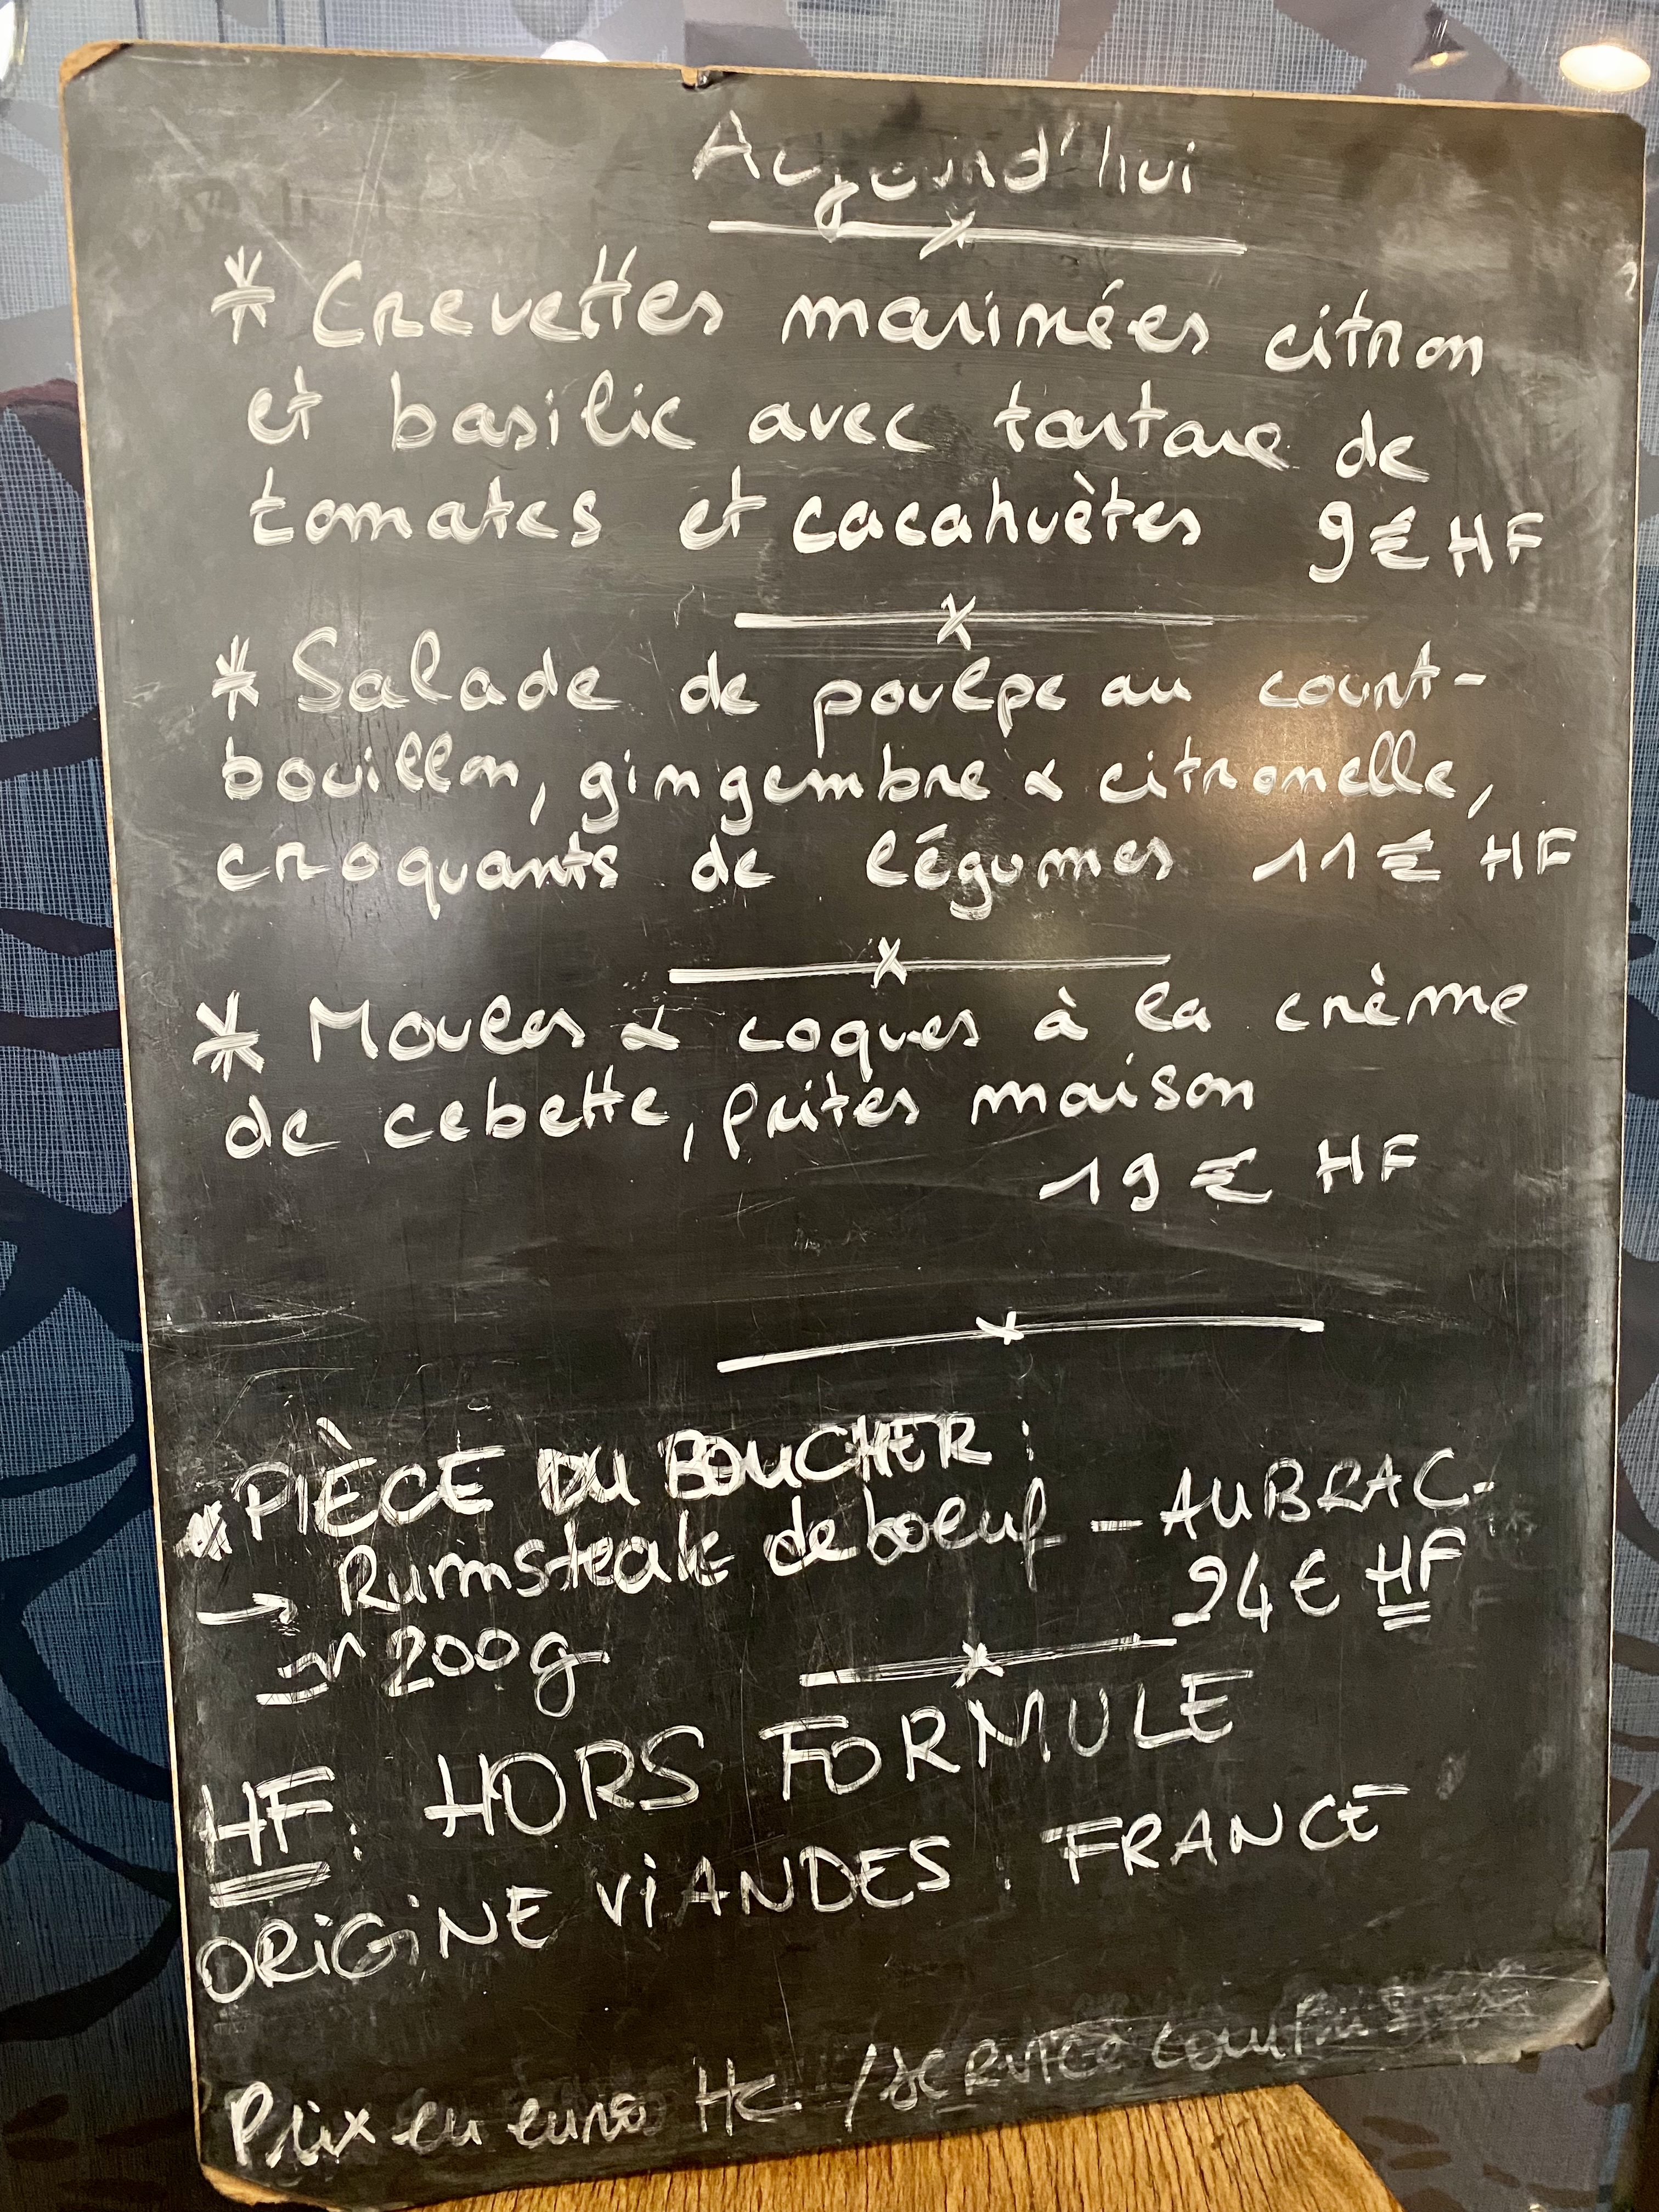 Aujourd'hui
* Crevettes marinées citron
et basilic avec tartare de
tomates et cacahuètes 9€ HF
* Salade de poulpe au court-
bouillon, gingembre & citronelle,
croquants de légumes 11€ HF
* Moules & coques à la crème
de cebette, frites maison
19€ HF
* PIÈCE DU BOUCHER :
→ Rumsteak de boeuf - AUBRAC -
24€ HF
~ 200g
HF : HORS FORMULE
ORIGINE VIANDES : FRANCE
Prix en euro / service compris